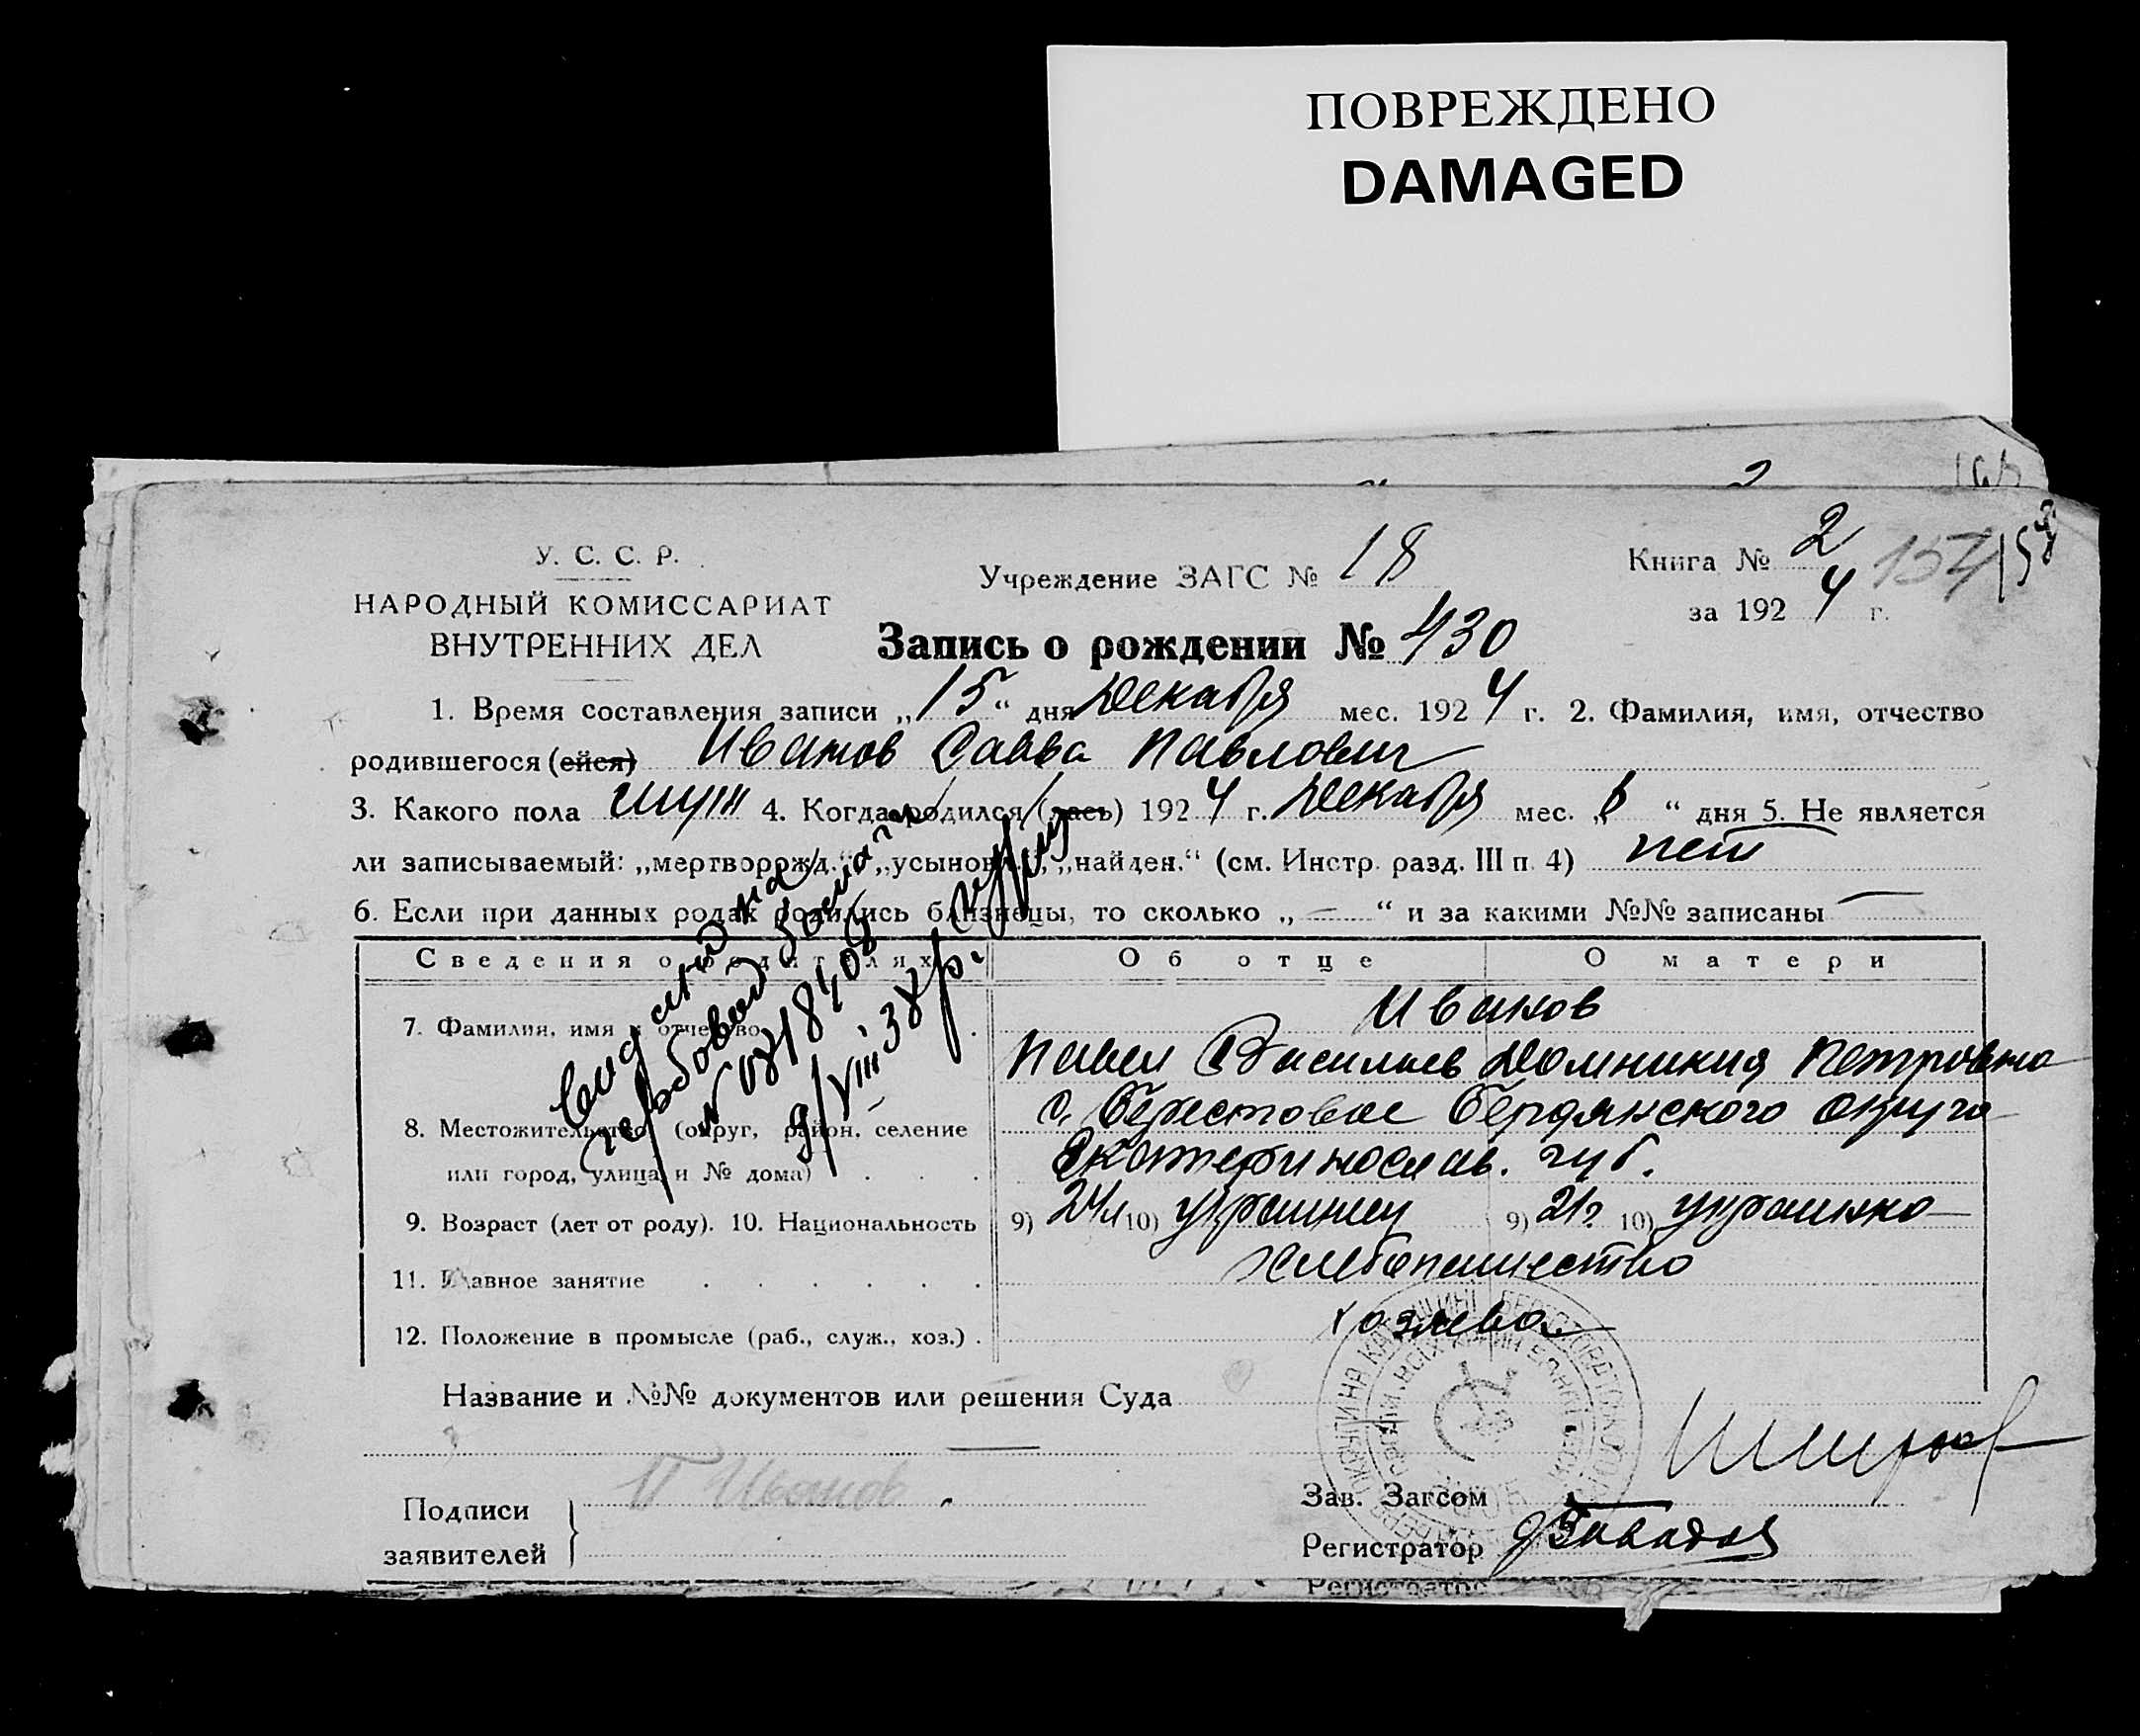 ПОВРЕЖДЕНО
DAMAGED
У. С. С. Р.
НАРОДНЫЙ КОМИССАРИАТ
ВНУТРЕННИХ ДЕЛ
Учреждение ЗАГС № 18
Книга № 2
154 158
за 1924 г.
Запись о рождении № 430
1. Время составления записи „15“ дня Декабря мес. 1924 г. 2. Фамилия, имя, отчество
родившегося (ейся) Иванов Савва Павлович
3. Какого пола муж 4. Когда родился (лась) 1924 г. Декабря мес. „6“ дня 5. Не является
ли записываемый: „мертворожд.“, „усыновл.“, „найден.“ (см. Инстр. разд. III п. 4) нет
6. Если при данных родах родились близнецы, то сколько „—“ и за какими №№ записаны —
Сведения о родителях
Об отце
О матери
7. Фамилия, имя и отчество
Иванов
Павел Васильев Домникия Петровна
8. Местожительство (округ, район, селение
или город, улица и № дома)
с. Берестовое Бердянского округа
Екатеринослав. губ.
9. Возраст (лет от роду). 10. Национальность
9) 24л 10) украинец
9) 21г 10) украинка
11. Главное занятие
хлебопашество
12. Положение в промысле (раб., служ., хоз.)
хозяева
Название и №№ документов или решения Суда
Подписи
заявителей
П Иванов
Зав. Загсом
Регистратор
Регистратор